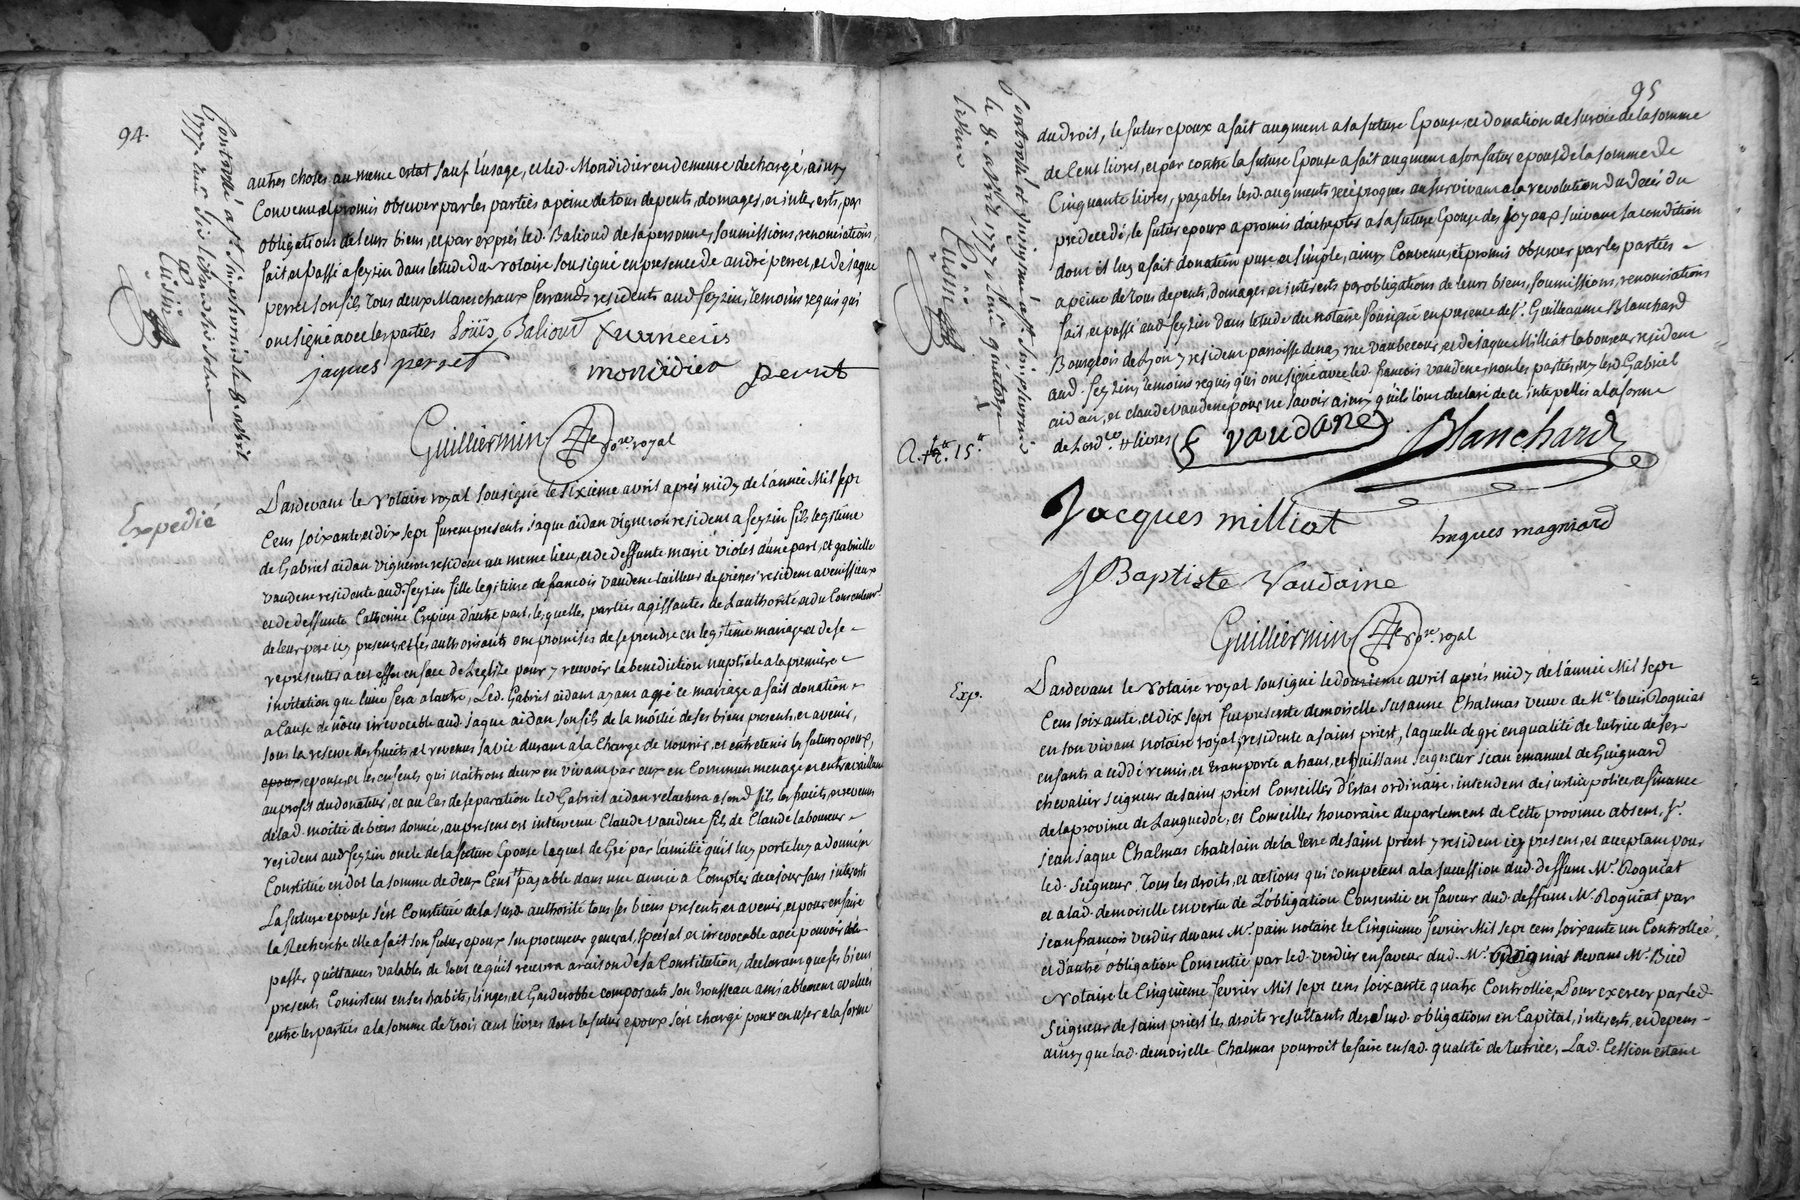 94.
Controllé a St Simphorien le 8. avril
1777. Reçu
Cusin
autres choses au meme estat sauf l'usage, et led. Mondidier en demeure dechargé, ainsy
Convenu et promis observer par les parties a peine de tous depents, domages, et interests, par
obligations de leurs biens, et par exprés led. Balioud de sa personne, soumissions, renonciations,
fait et Passé a feyzin dans l'etude du notaire sousigné en presence de andré perret, et de jaque
perret son fils tous deux Mareschaux ferrands residents aud. feyzin, temoins requis qui
ont signé avec les parties Loüis Balioud francois
jaques perret mondidier perret
Guilliermin no.re royal
Expedié
Pardevant le Notaire royal sousigné le sixieme avril aprés midy de l'année Mil sept
Cent soixante et dix sept furent presents jaque aidan vigneron resident a feyzin fils legitime
de Gabriel aidan vigneron resident au meme lieu, et de deffunte marie violes d'une part, et gabrielle
vaudene residente aud. feyzin fille legitime de francois vaudene tailleur de pierres resident a venissieux
et de deffunte Catherine Crepieu d'autre part, lesquelles parties agissantes de l'authorité et du Consentement
de leur pere icy presents, et les authorisants ont promises de se prendre en legitime mariage et de se
representer a cet effet en face de l'eglise pour y recevoir la benediction nuptiale a la premiere
invitation que l'une fera a l'autre, Led. Gabriel aidan ayant agréé ce mariage a fait donation
a Cause de nôces irrevocable aud. jaque aidan son fils de la moitié de ses biens presents, et avenir,
sous la reserve des fruits et revenus sa vie durant a la Charge de nourrir, et entretenir les futurs epoux,
epoux epouse, et les enfents qui naitront deux en vivant par eux en Commun menage et en travaillant
au profit du donateur, et au Cas de separation led Gabriel aidan relachera a sond. fils les fruits, et revenus
de lad. moitié de biens donnée, au present est intervenu Claude vaudene fils de Claude laboureur
resident aud feyzin oncle de la future Epouse lequel de Gré par l'amitié qu'il luy porte luy a donné, et
Constitué en dot la somme de deux Cent tt payable dans une année a Compter de ce jour sans interests
La future epouse s'est Constituée de la susd. authorité tous ses biens presents, et avenir, et pour en faire
la Recherche elle a fait son futur epoux son procureur general, special et irrevocable avec pouvoir de
passer quittances valables de tout ce qu'il recevra a raison de sa Constitution, declarant que ses biens
presents Consistent en ses habits, linges, et Garderobbe composants son trousseau amiablement evalués
entre les parties a la somme de trois cent livres dont le futur epoux s'est chargé pour en user a la forme
95
Controllé et insinué a St Simphorien
le 8. avril 1777. Reçu quatorze
livres
Cusin
du droit, le futur epoux a fait augment a sa future Epouse, et donation de survie de la somme
de Cent livres, et par contre la future Epouse a fait augment a son futur epoux de la somme de
Cinquante livres, payables lesd. augments reciproques au survivant a la revolution du decés du
predecedé, le futur epoux a promis d'achepter a sa future Epouse des joyaux suivant sa condition
dont il luy a fait donation pure et simple, ainsy Convenu et promis observer par les parties
a peine de tous depents, domages et interests par obligations de leurs biens, soumissions, renonciations
fait, et passé aud feyzin dans l'etude du notaire sousigné en presence de Sr. Guilleaume Blanchard
Bourgeois de Lyon y resident paroisse denay rue vaubecour, et de jaque Milliat laboureur resident
aud. feyzin, temoins requis qui ont signé avec led. francois vaudene non les parties, ny lesd Gabriel
aidan, et claude vaudene pour ne savoir ainsy qu'ils l'ont declaré de ce interpellés a la forme
de L'ord.ce tt livres f vaudane Blanchard
Jacques milliat jnques magniard
J Baptiste Vaudaine
Guilliermin no.re royal
Exp.
Pardevant le Notaire royal sousigné le douzieme avril aprés midy de l'année Mil sept
Cent soixante, et dix sept fut presente demoiselle Susanne Chalmas veuve de Me. louis Rogniat
en son vivant notaire royal, residente a saint priest, laquelle de gré en qualité de tutrice de ses
enfants a ceddé remis, et transporté a haut, et puissant seigneur jean emanuel de Guignard
chevalier seigneur de saint priest Conseiller d'Estat ordinaire, intendent de justice police, et finance
de la province de Languedoc, et Conseiller honoraire du parlement de Cette province absent, Sr.
jean jaque Chalmas chatelain de la terre de saint priest y resident icy present, et acceptant pour
led. Seigneur, tous les droits, et actions qui competent a la succession dud. deffunt Me. Rogniat
et a lad. demoiselle en vertu de L'obligation Consentie en faveur dud. deffunt Me. Rogniat par
jean francois verdier devant Me. pain notaire le Cinquieme fevrier Mil sept cent soixante un Controllée,
et d'autre obligation Consentie par led. verdier en faveur dud. Me. Rogniat devant Me. Bied
Notaire le Cinquieme fevrier Mil sept cent soixante quatre Controllée, Pour exercer par led.
Seigneur de saint priest les droits resultants des susd. obligations en Capital, interests, et depens
ainsy que lad. demoiselle Chalmas pourroit le faire en sad. qualité de tutrice, Lad. Cession estant